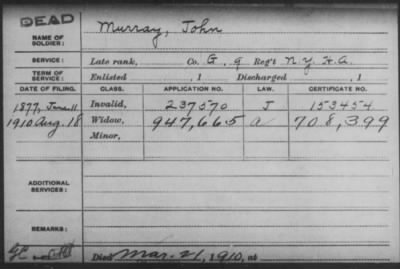 DEAD
NAME OF SOLDIER: Murray, John
SERVICE: Late rank, Co. G, 9 Reg't N.Y. H.A.
TERM OF SERVICE: Enlisted , 1 Discharged , 1
DATE OF FILING. CLASS. APPLICATION NO. LAW. CERTIFICATE NO.
1877, June 11 Invalid, 237570 J 153454
1910 Aug. 18 Widow, 947,665 a 708,399
Minor,
ADDITIONAL SERVICES:
REMARKS:
Died Mar. 21, 1910, at